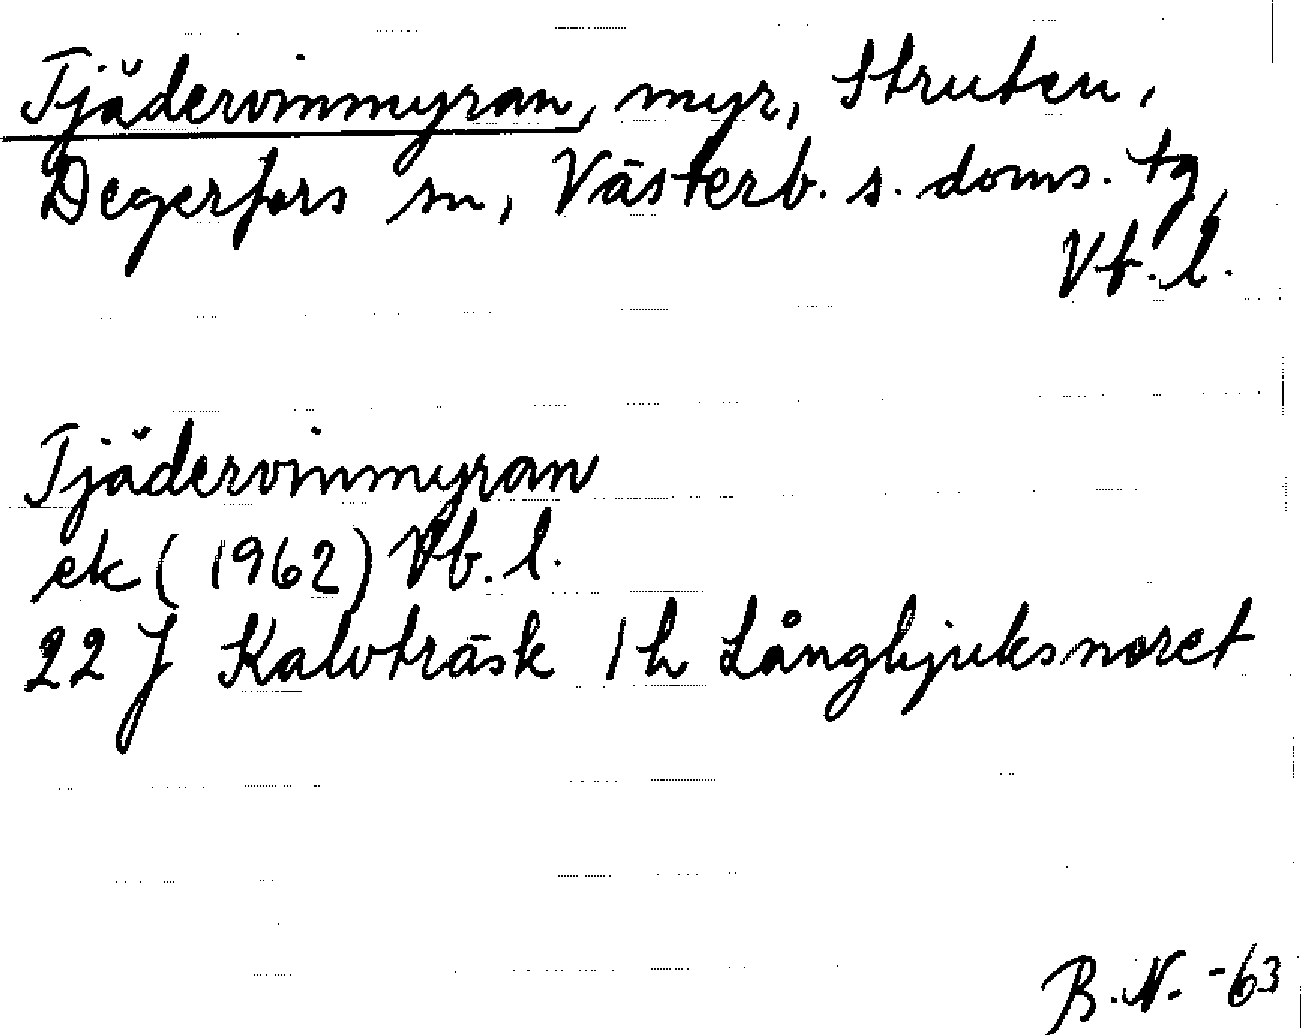 Tjädervinmyran, myr, Struten,
Degerfors sn, Västerb. s. doms. tg,
Vb. l.
Tjädervinmyran
ek (1962) Vb. l.
22 J Kalvträsk 1 h Långbjuksnoret
B. N. -63